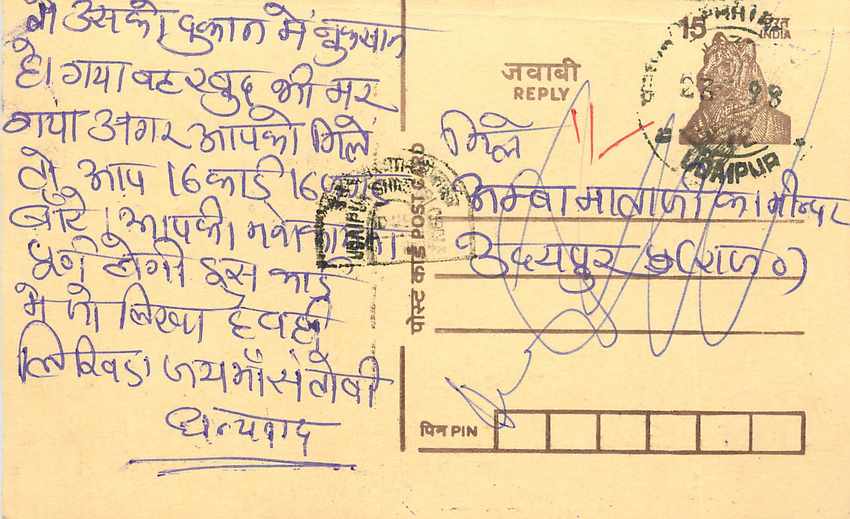 में उसको दुकान में नुकसान
हो गया वह खुद भी मर
गया अगर आपको मिले
तो आप 16 कार्ड 16
बांटे। आपकी मनोकामना
पुर्ण होगी इस कार्ड
मे जो लिखा है वही
लिखिए जय माँ संतोषी
धन्यवाद
जवाबी
REPLY
15
भारत
INDIA
UDAIPUR
पोस्ट कार्ड POST CARD
मिले
अम्बा माताजी का मन्दिर
उदयपुर (राज०)
पिन PIN